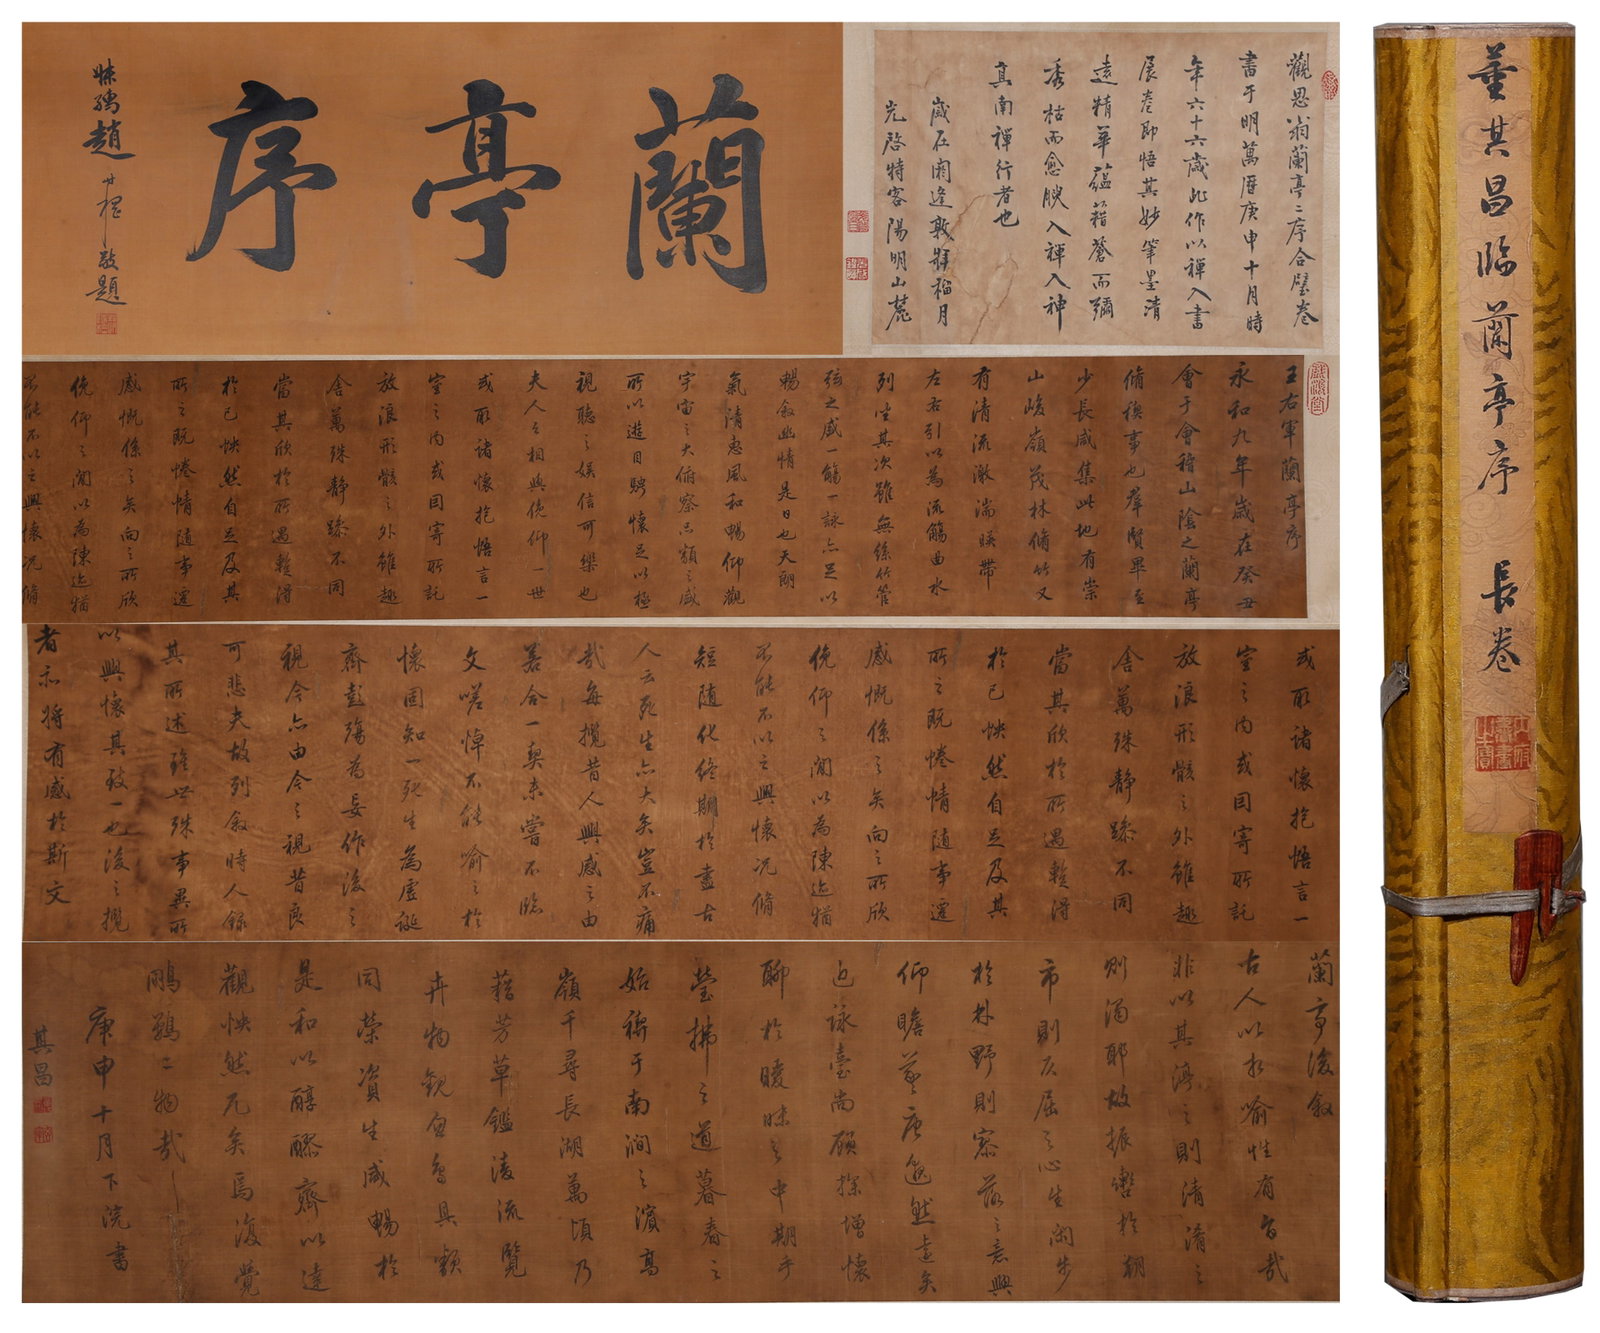 董其昌臨蘭亭序 長卷
蘭亭序
趙世 敬題
觀思翁蘭亭二序合璧卷
書于明萬曆庚申十月時
年六十六歲此作以禪入書
展卷即悟其妙筆墨清
遠精華蘊藉蒼而彌
秀枯而愈腴入禪入神
真南禪行者也
歲在閼逢敦牂榴月
啓特客陽明山麓
王右軍蘭亭序
永和九年歲在癸丑
會于會稽山陰之蘭亭
脩稧事也羣賢畢至
少長咸集此地有崇
山峻嶺茂林脩竹又
有清流激湍暎帶
左右引以為流觴曲水
列坐其次雖無絲竹管
弦之盛一觴一詠亦足以
暢叙幽情是日也天朗
氣清惠風和暢仰觀
宇宙之大俯察品類之盛
所以遊目騁懷足以極
視聽之娛信可樂也
夫人之相與俛仰一世
或取諸懷抱悟言一
室之內或因寄所託
放浪形骸之外雖趣
舍萬殊靜躁不同
當其欣於所遇蹔得
於己怏然自足及其
所之既惓情隨事遷
感慨係之矣向之所欣
俛仰之間以為陳迹猶
不能不以之興懷況脩
或取諸懷抱悟言一
室之內或因寄所託
放浪形骸之外雖趣
舍萬殊靜躁不同
當其欣於所遇蹔得
於己怏然自足及其
所之既惓情隨事遷
感慨係之矣向之所欣
俛仰之間以為陳迹猶
不能不以之興懷況脩
短隨化終期於盡古
人云死生亦大矣豈不痛
哉每攬昔人興感之由
若合一契未嘗不臨
文嗟悼不能喻之於
懷固知一死生為虛誕
齊彭殤為妄作後之
視今亦由今之視昔良
可悲夫故列叙時人錄
其所述雖世殊事異所
以興懷其致一也後之攬
者亦將有感於斯文
蘭亭後叙
古人以水喻性有旨哉
非以其渟之則清淆之
則濁耶故振轡於朝
市則充屈之心生閑步
於林野則寥落之意興
仰瞻羲唐邈然遠矣
近詠臺尚顧探增懷
聊於曖昧之中期乎
瑩拂之道暮春之
始禊于南澗之濱高
嶺千尋長湖萬頃乃
藉芳草鑑清流覽
卉物觀魚鳥具類
同榮資生咸暢於
是和以醇醪齊以達
觀怏然兀矣焉復覺
鵬鷃二物哉
庚申十月下浣書
其昌